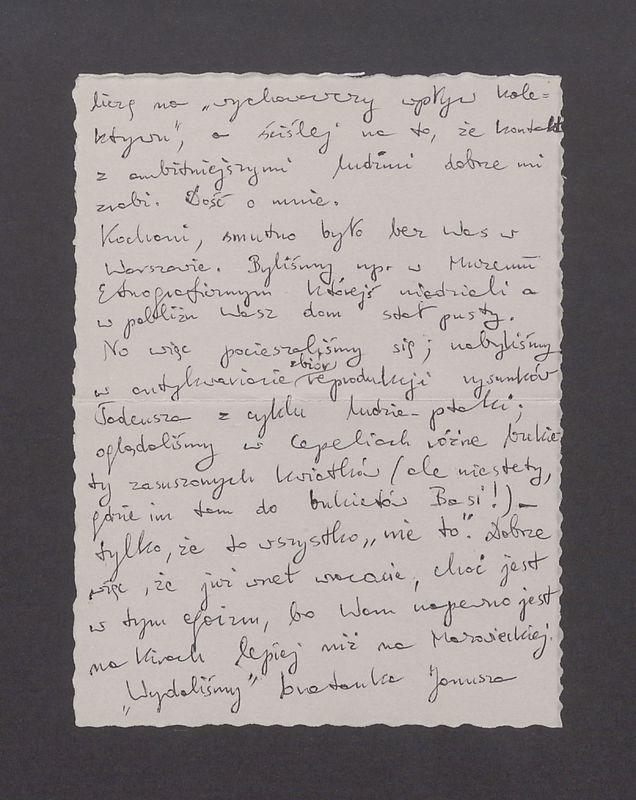 liczę na „wychowawczy wpływ kole=
ktywu", a ściślej na to, że kontakt
z ambitniejszymi ludźmi dobrze mi
zrobi. Dość o mnie.
Kochani, smutno było bez Was w
Warszawie. Byliśmy np. w Muzeum
Etnograficznym którejś niedzieli a
w pobliżu Wasz dom stał pusty.
No więc pocieszaliśmy się; nabyliśmy
zbiór
w antykwariacie reprodukcji rysunków
Tadeusza z cyklu ludzie-ptaki;
oglądaliśmy w Cepeliach różne bukie
ty zasuszonych kwiatków (ale niestety,
gdzie im tam do bukietów Basi!) –
tylko, że to wszystko „nie to". Dobrze
więc, że już wnet wracacie, choć jest
w tym egoizm, bo Wam napewno jest
na Kirach lepiej niż na Mazowieckiej.
„Wydaliśmy" bratanka Janusza